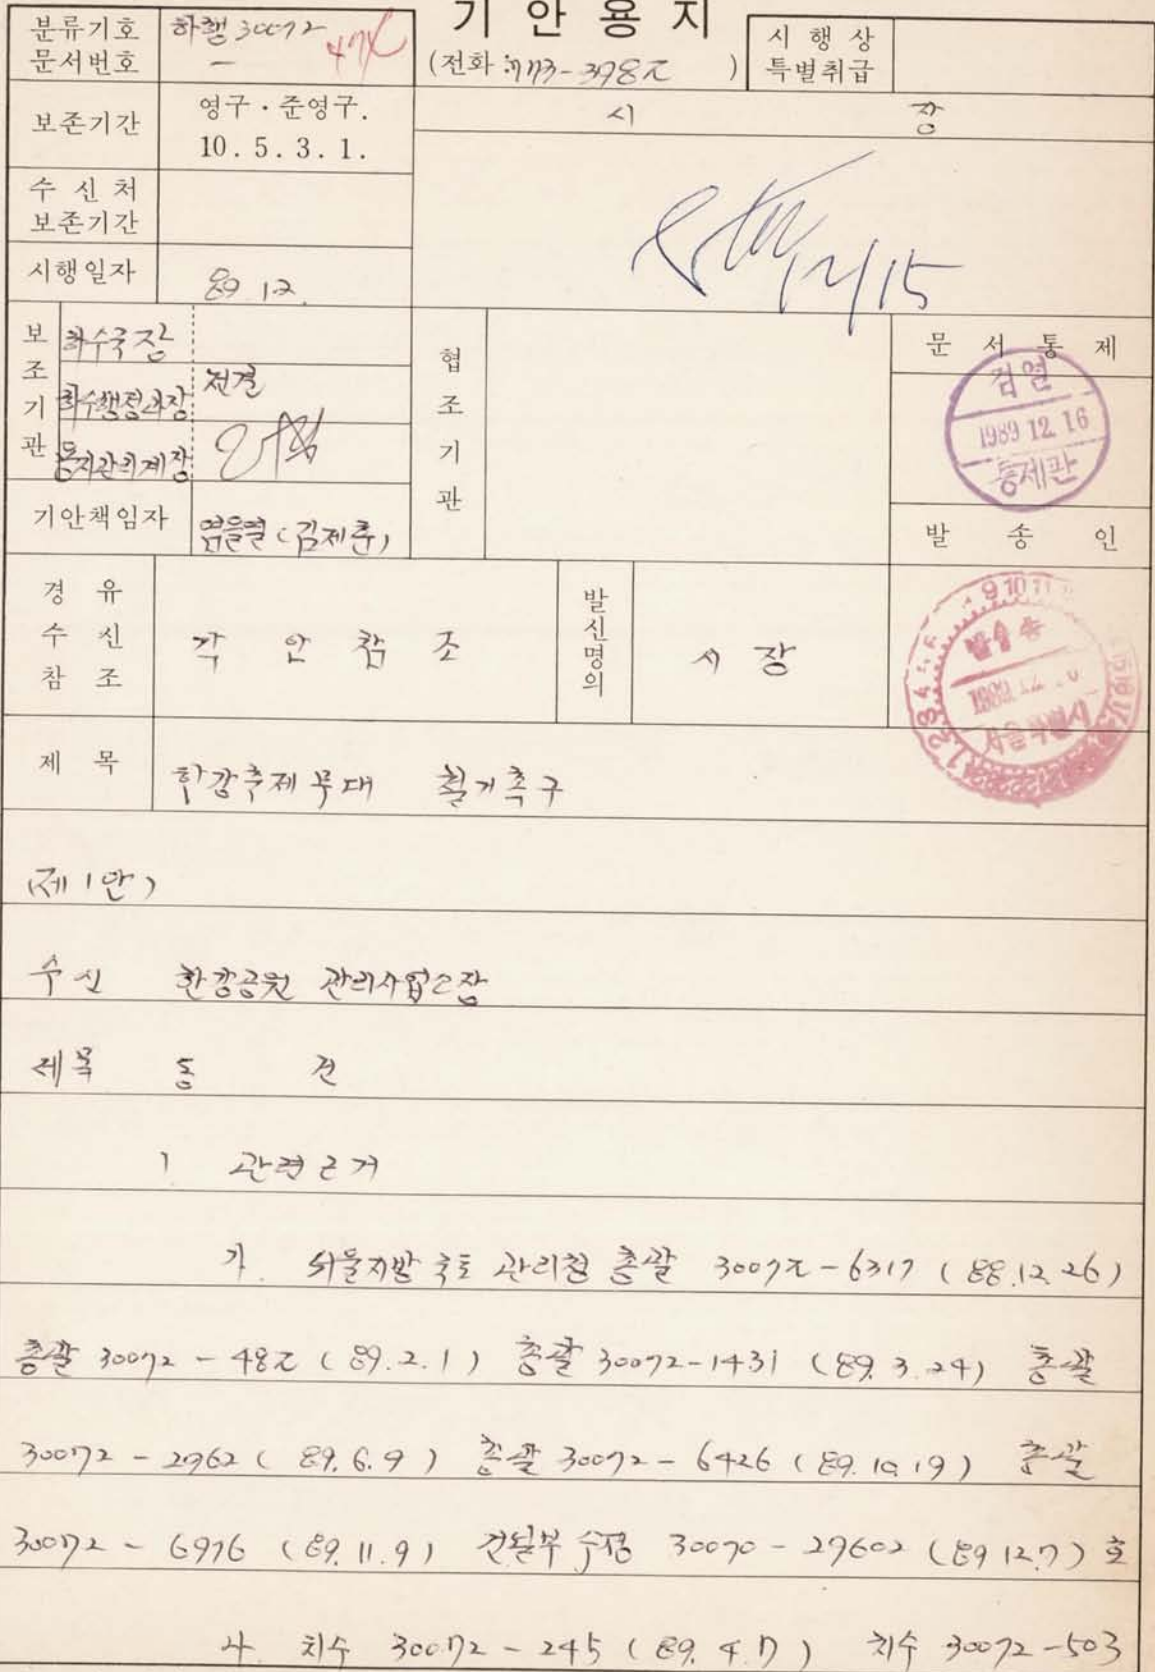 기 안 용 지
분류기호 하행 30072
문서번호 - 474
(전화 : 773-3982 )
시 행 상
특별취급
보존기간 영구 · 준영구.
10 . 5 . 3 . 1 .
시 장
수 신 처
보존기간
12/15
시행일자 89. 12.
보조기관
하수국장
하수행정과장 전결
둔치관리계장
협조기관
문 서 통 제
검열
1989 12. 16
통제관
기안책임자 염을열 (김제춘)
발 송 인
경 유
수 신 각 안 참 조
참 조
발신명의 시 장
발송
1989. 12.
서울특별시
제 목 한강축제 무대 철거촉구
(제 1 안)
수신 한강공원 관리사업소장
제목 동 건
1 관련근거
가. 서울지방 국토 관리청 총괄 30072-6317 (88.12.26)
총괄 30072 - 482 (89.2.1) 총괄 30072-1431 (89.3.24) 총괄
30072 - 2962 (89.6.9) 총괄 30072 - 6426 (89.10.19) 총괄
30072 - 6976 (89.11.9) 건설부 수정 30070 - 29602 (89 12.7) 호
나. 치수 30072 - 245 (89. 4.17) 치수 30072-503